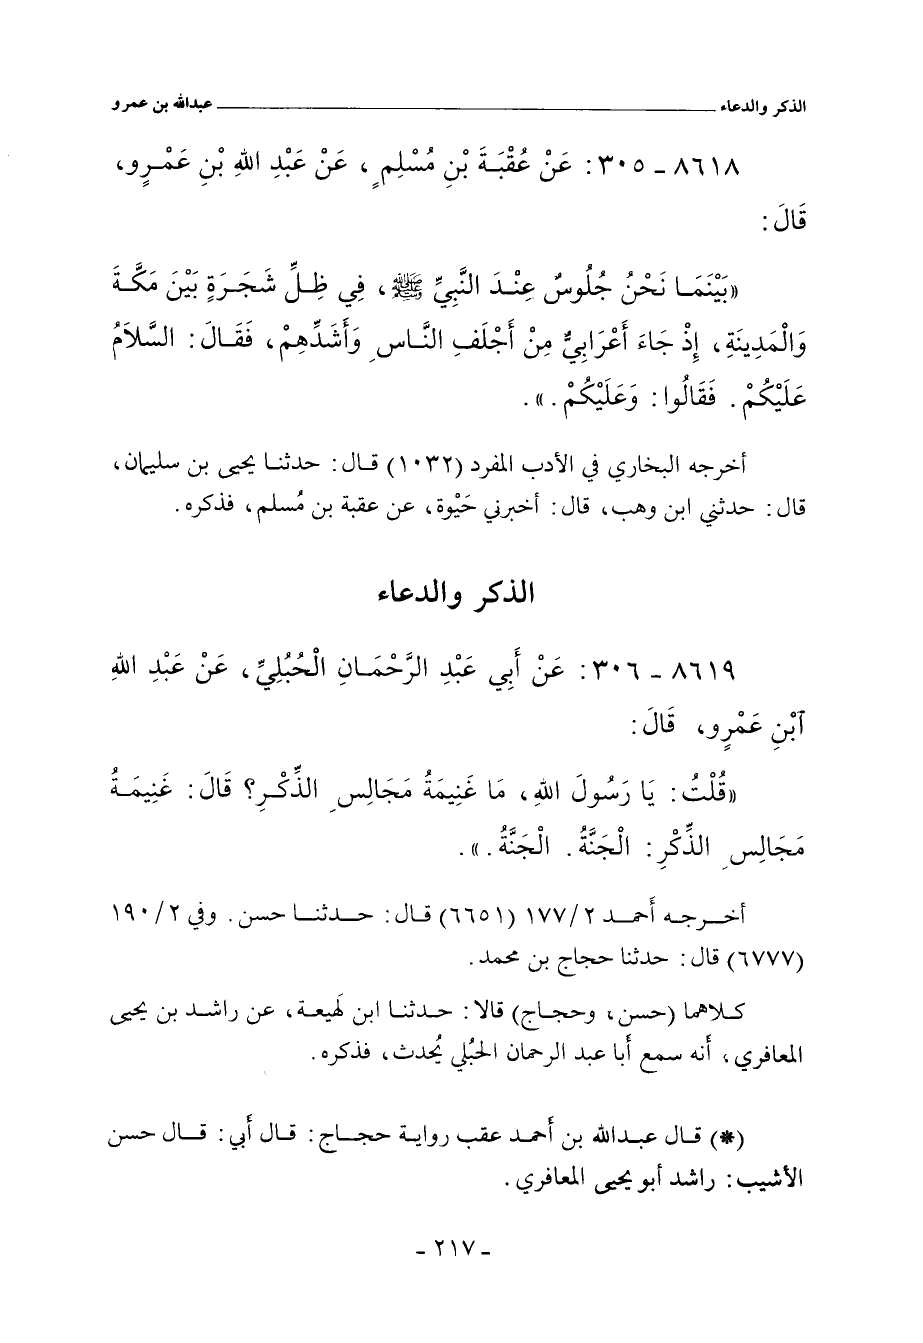 الذكر والدعاء ــــــــــ عبدالله بن عمرو
٨٦١٨ - ٣٠٥: عَنْ عُقْبَةَ بْنِ مُسْلِمٍ، عَنْ عَبْدِ اللهِ بْنِ عَمْرٍو،
قَالَ:
«بَيْنَمَا نَحْنُ جُلُوسٌ عِنْدَ النَّبِيِّ ﷺ، فِي ظِلِّ شَجَرَةٍ بَيْنَ مَكَّةَ
وَالْمَدِينَةِ، إِذْ جَاءَ أَعْرَابِيٌّ مِنْ أَجْلَفِ النَّاسِ وَأَشَدِّهِمْ، فَقَالَ: السَّلَامُ
عَلَيْكُمْ. فَقَالُوا: وَعَلَيْكُمْ.».
أخرجه البخاري في الأدب المفرد (١٠٣٢) قال: حدثنا يحيى بن سليمان،
قال: حدثني ابن وهب، قال: أخبرني حَيْوة، عن عقبة بن مُسلم، فذكره.
الذكر والدعاء
٨٦١٩ - ٣٠٦: عَنْ أَبِي عَبْدِ الرَّحْمَانِ الْحُبُلِيِّ، عَنْ عَبْدِ اللهِ
آبْنِ عَمْرٍو، قَالَ:
«قُلْتُ: يَا رَسُولَ اللهِ، مَا غَنِيمَةُ مَجَالِسِ الذِّكْرِ؟ قَالَ: غَنِيمَةُ
مَجَالِسِ الذِّكْرِ: الْجَنَّةُ. الْجَنَّةُ.».
أخرجه أَحمد ٢/١٧٧ (٦٦٥١) قال: حدثنا حسن. وفي ٢/١٩٠
(٦٧٧٧) قال: حدثنا حجاج بن محمد.
كلاهما (حسن، وحجاج) قالا: حدثنا ابن لَهيعة، عن راشد بن يحيى
المعافري، أنه سمع أبا عبد الرحمان الحُبُلي يُحدث، فذكره.
(*) قال عبدالله بن أحمد عقب رواية حجاج: قال أَبي: قال حسن
الأشيب: راشد أبو يحيى المعافري.
- ٢١٧ -